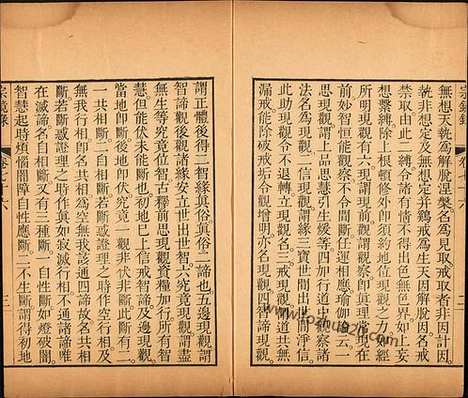 宗鏡錄 卷七十六 二
無想天執為解脫涅槃名為見取戒取者非因計因
執非想定為究竟并雞戒為生天因解脫因名戒
禁取由此二縛令諸有情不得出色無色界如上妄
想縈縛除上根頓修外即須約地位現觀之力如經
所明現觀有六現謂現前明了觀察即真理現
前妙智恒能觀察不令間斷任運相應瑜伽云一
思現觀謂上品思慧引生緩等四加行道中觀察諸
法名為現觀二信現觀謂緣三寶世間出世間淨信
此助現觀令不退轉立現觀名三戒現觀謂道共無
漏戒能除破戒垢令觀增明亦名現觀四智諦現觀
謂正體後得二智緣真俗真俗二諦也五邊現觀謂
智諦觀後觀諸緣安立世出世智六究竟現觀謂盡
無生等究竟位智古釋前思現觀資糧加行所有智
慧但能伏未能斷也初地已上信戒智諦及邊現觀
當地即斷後伏究竟一觀非伏非斷此斷有二
一共相斷二自相斷若斷惑證理之時作空行相及
無我行相苦空無我該通四諦故名共相
斷若斷惑證理之時作真如寂滅行相不通諸諦唯
在滅諦名自相斷又有三種斷一自性斷如燈破闇
智慧起時煩惱闇障自性應斷二不生斷謂得初地
宗鏡錄 卷七十六 三